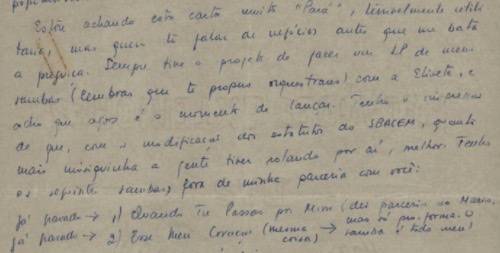 Estou achando esta carta muito "Pará", terrivelmente utili
tária, mas quero te falar de negócios antes que me bata
a preguiça. Sempre tive o projeto de fazer um LP de meus
sambas (lembras que te propus orquestrares) com a Elizete, e
acho que agora é o momento de lançar. Tenho a impressão
de que, com a modificação dos estatutos da SBACEM, quanto
mais musiquinha a gente tiver rolando por aí, melhor. Tenho
os seguintes sambas, fora de minha parceria com você:
já gravado → 1) Quando Tu Passas por Mim (dei parceria ao Maria,
já gravado → 2) Esse Meu Coração (mesma coisa) → mas só pro-forma. O
samba é todo meu)